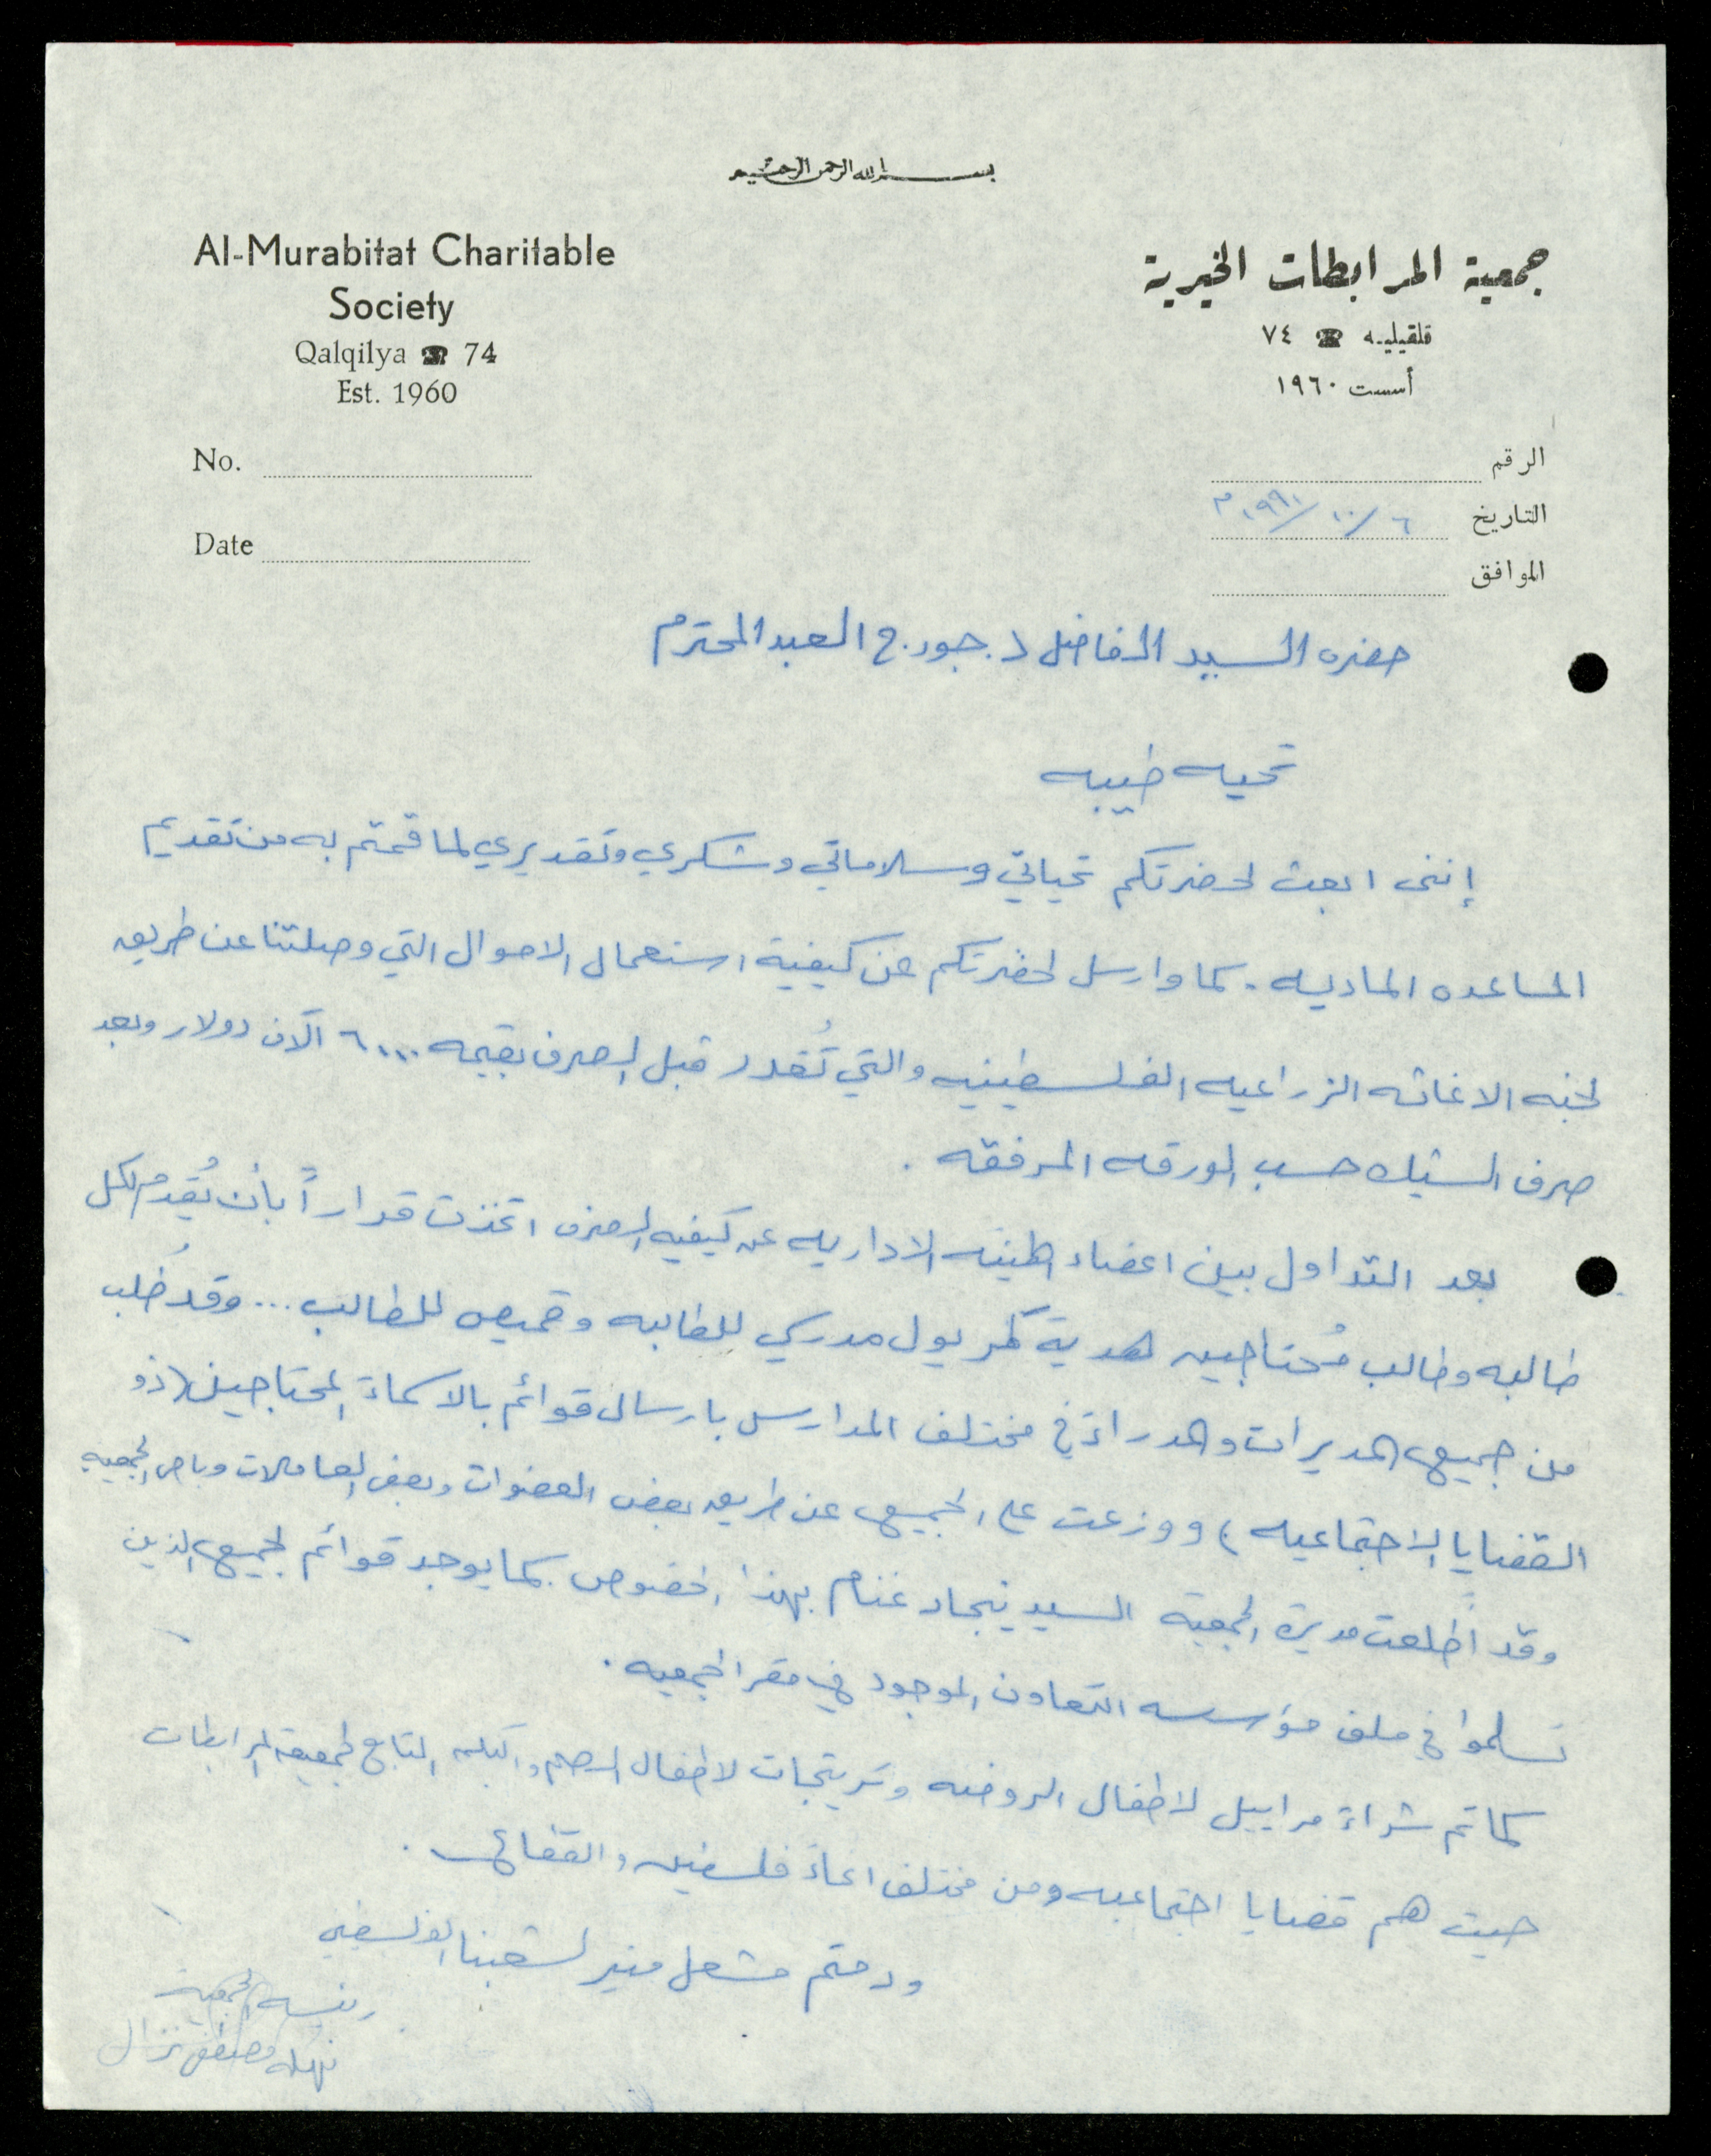 بسم الله الرحمن الرحيم
Al-Murabitat Charitable
Society
Qalqilya ☎ 74
Est. 1960
No.
Date
جمعية المرابطات الخيرية
قلقيليه ☎ ٧٤
أسست ١٩٦٠
الرقم
التاريخ ٦/١٠/١٩٩٠م
الموافق
حضره السيد الفاضل د. جورج العبد المحترم
تحيه طيبه
إنني ابعث لحضرتكم تحياتي وسلاماتي وشكري وتقديري لما قمتم به من تقديم
المساعده الماديه. كما وارسل لحضرتكم عن كيفية استعمال الاموال التي وصلتنا عن طريق
لجنه الاغاثه الزراعيه الفلسطينيه والتي تُقدر قبل الصرف بقيمه ٦٠٠٠ آلاف دولار وبعد
صرف الشيك حسب الورقه المرفقه.
بعد التداول بين اعضاء الهيئه الاداريه عن كيفيه الصرف اتخذت قراراً بأن يُقدم لكل
طالبه وطالب مُحتاجين هدية كمريول مدرسي للطالبه وقميص للطالب... وقد طُلب
من جميع المديرات والمدراء في مختلف المدارس بارسال قوائم بالاسماء المحتاجين (ذو
القضايا الاجتماعيه) ووزعت على الجميع عن طريق بعض العضوات وبعض العاملات وباص الجمعيه
وقد أطلعت مديرة الجمعية السيد نجاد غنام بهذا الخصوص. كما يوجد قوائم لجميع الذين
تسلموا في ملف مؤسسه التعاون الموجود في مقر الجمعيه.
كما تم شراء مراييل لاطفال الروضه وتريتجات لاطفال الصم والبكم التابع لجمعية المرابطات
حيث هم قضايا اجتماعيه ومن مختلف انحاء فلسطين والقضاء.
ودمتم مشعل منير لشعبنا الفلسطيني
رئيسه الجمعية
نهله مصطفى نزال